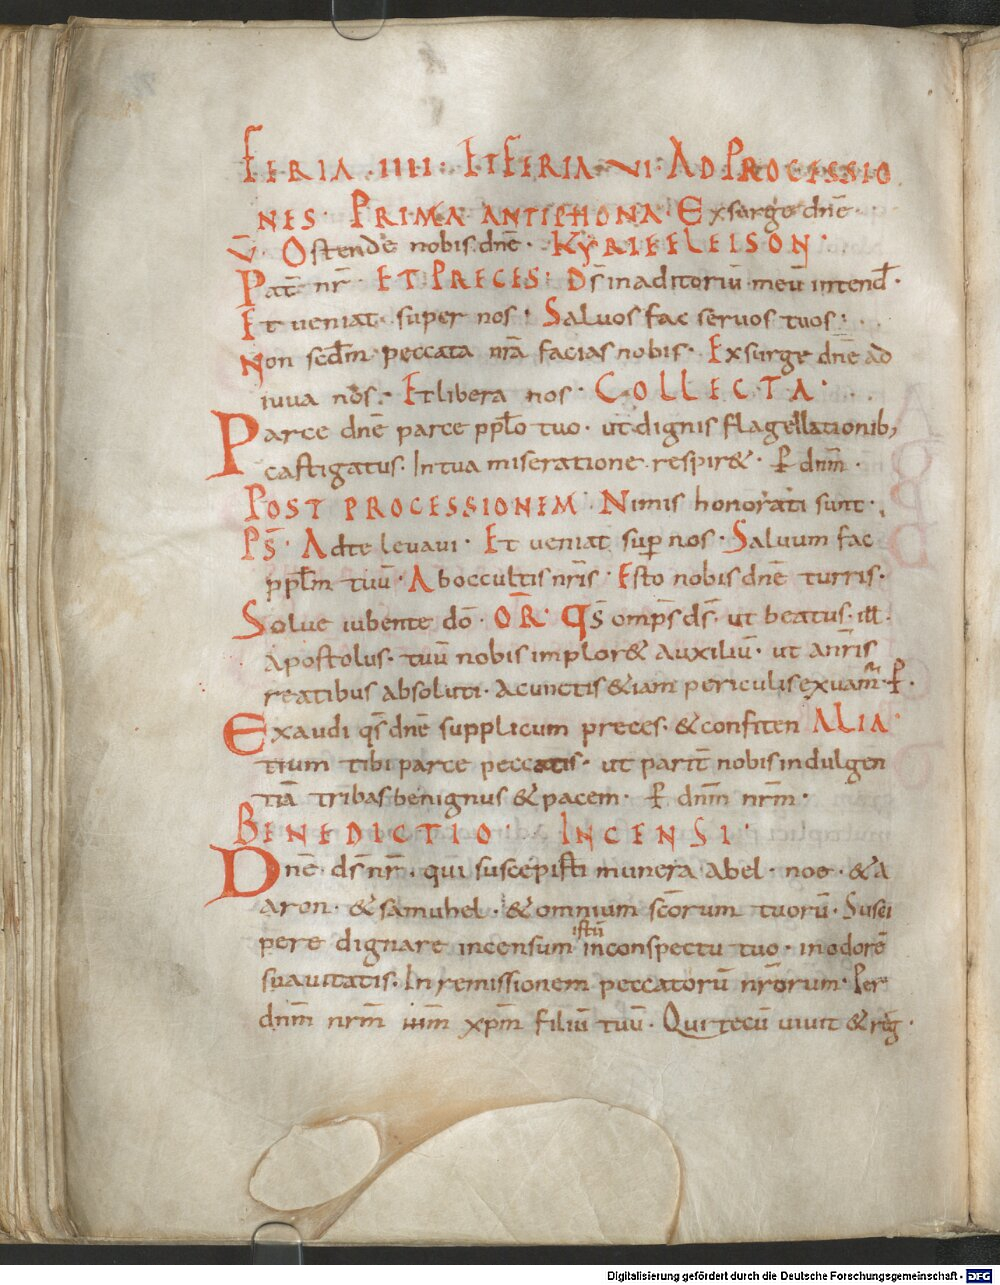 FERIA .IIII. ET FERIA VI. AD PROCESSIO
NES. PRIMA ANTIPHONA. Exsurge dnē.
V̄. Ostende nobis dnē. KYRIE ELEISON.
Pat̄ nr̄. ET PRECES. Ds̄ in aditoriū meū intend̄.
Et ueniat super nos. Saluos fac seruos tuos.
Non scd̄m peccata nrā facias nobis. Exsurge dnē ad
iuua nos. Et libera nos. COLLECTA.
Parce dnē parce ppl̄o tuo. ut dignis flagellationib;
castigatus. In tua miseratione respir&. P̄ dnm̄.
POST PROCESSIONEM. Nimis honorati sunt.
Ps̄. Ad te leuaui. Et ueniat sup̄ nos. Saluum fac
ppl̄m tuū. Ab occultis nr̄is. Esto nobis dnē turris.
Solue iubente dō. OR̄. Qs̄ omps̄ ds̄. ut beatus. ill̄.
apostolus. tuū nobis implor& auxiliū. ut a nr̄is
reatibus absoluti. a cunctis &iam periculis exuam̄. P̄.
Exaudi qs̄ dnē supplicum preces. & confiten ALIA.
tium tibi parce peccatis. ut parit̄ nobis indulgen
tiā tribas benignus & pacem. P̄ dnm̄ nrm̄.
BENEDICTIO INCENSI.
Dnē ds̄ nr̄. qui suscepisti munera abel. noe. & a
aron. & samuhel. & omnium scōrum tuorū. Susci
pere dignare incensum istū in conspectu tuo. in odorē
suauitatis. In remissionem peccatorū nr̄orum. Per
dnm̄ nrm̄ ihm̄ xpm̄ filiū tuū. Qui tecū uiuit & reḡ.
Digitalisierung gefördert durch die Deutsche Forschungsgemeinschaft - DFG